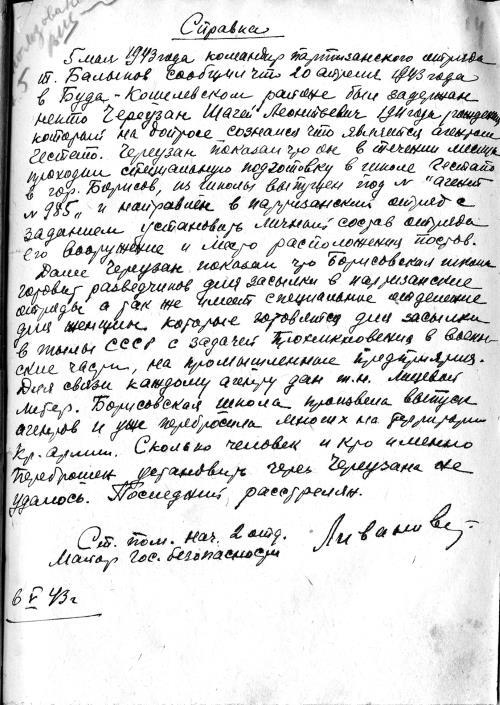 Справка
5 мая 1943 года командир партизанского отряда
т. Балыков сообщил что 20 апреля 1943 года
в Буда-Кошелевском районе был задержан
некто Череузан Леонтьевич 1911 года рождения
который на вопросе сознался что является агентом
Гестапо. Череузан показал что он в течении месяца
проходил специальную подготовку в школе Гестапо
в гор. Борисов, из школы выпущен под № "агент
№ 985" и направлен в партизанский отряд с
заданием установить личный состав отряда
его вооружение и место расположения постов.
Далее Череузан показал что Борисовская школа
готовит разведчиков для засылки в партизанские
отряды а так же имеет специальное отделение
для женщин которые готовятся для засылки
в тылы СССР с задачей проникновения в воин-
ские части, на промышленные предприятия.
Для связи каждому агенту дан т.н. лицевой
литер. Борисовская школа произвела выпуск
агентов и уже перебросила многих на территорию
Кр. армии. Сколько человек и кто именно
переброшен установить через Череузана не
удалось. Последний расстрелян.
Ст. пом. нач. 2 отд.
Майор гос. безопасности
6 V 43 г
14